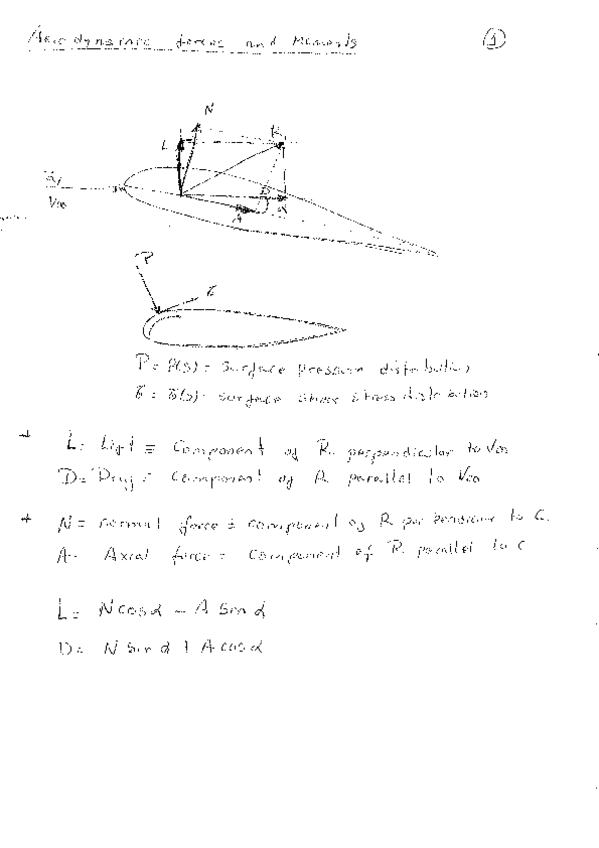 Aerodynamic forces and Moments
1
N
L
R
α
V∞
D
A
P
τ
P = P(s) = Surface pressure distribution
τ = τ(s) = surface shear stress distribution
+ L = Lift ≡ Component of R perpendicular to V∞
D = Drag = Component of R parallel to V∞
+ N = normal force ≡ component of R perpendicular to C.
A = Axial force = Component of R parallel to C
L = N cos α - A Sin α
D = N Sin α + A cos α